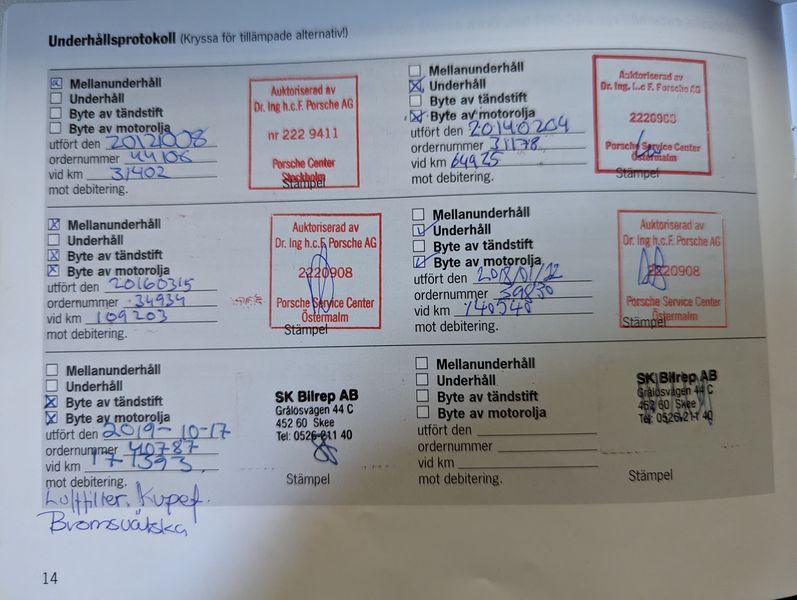 Underhållsprotokoll (Kryssa för tillämpade alternativ!)
Mellanunderhåll
Underhåll
Byte av tändstift
Byte av motorolja
utfört den 20121008
ordernummer 44106
vid km 31402
mot debitering.
Auktoriserad av
Dr. Ing h.c.F. Porsche AG
nr 222 9411
Porsche Center
Stockholm
Stämpel
Mellanunderhåll
Underhåll
Byte av tändstift
Byte av motorolja
utfört den 20140204
ordernummer 31178
vid km 64925
mot debitering.
Auktoriserad av
Dr. Ing. h.c F. Porsche AG
2220908
Porsche Service Center
Östermalm
Stämpel
Mellanunderhåll
Underhåll
Byte av tändstift
Byte av motorolja
utfört den 20160315
ordernummer 34934
vid km 109203
mot debitering.
Auktoriserad av
Dr. Ing h.c.F. Porsche AG
2220908
Porsche Service Center
Östermalm
Stämpel
Mellanunderhåll
Underhåll
Byte av tändstift
Byte av motorolja
utfört den 2018/01/22
ordernummer 39830
vid km 140540
mot debitering.
Auktoriserad av
Dr. Ing h.c.F. Porsche AG
2220908
Porsche Service Center
Östermalm
Stämpel
Mellanunderhåll
Underhåll
Byte av tändstift
Byte av motorolja
utfört den 2019-10-17
ordernummer 40787
vid km 171593
mot debitering.
Luftfilter. Kupef.
Bromsvätska
SK Bilrep AB
Grålösvägen 44 C
452 60 Skee
Tel: 0526-211 40
Stämpel
Mellanunderhåll
Underhåll
Byte av tändstift
Byte av motorolja
utfört den
ordernummer
vid km
mot debitering.
SK Bilrep AB
Grålösvägen 44 C
452 60 Skee
Tel: 0526-211 40
Stämpel
14